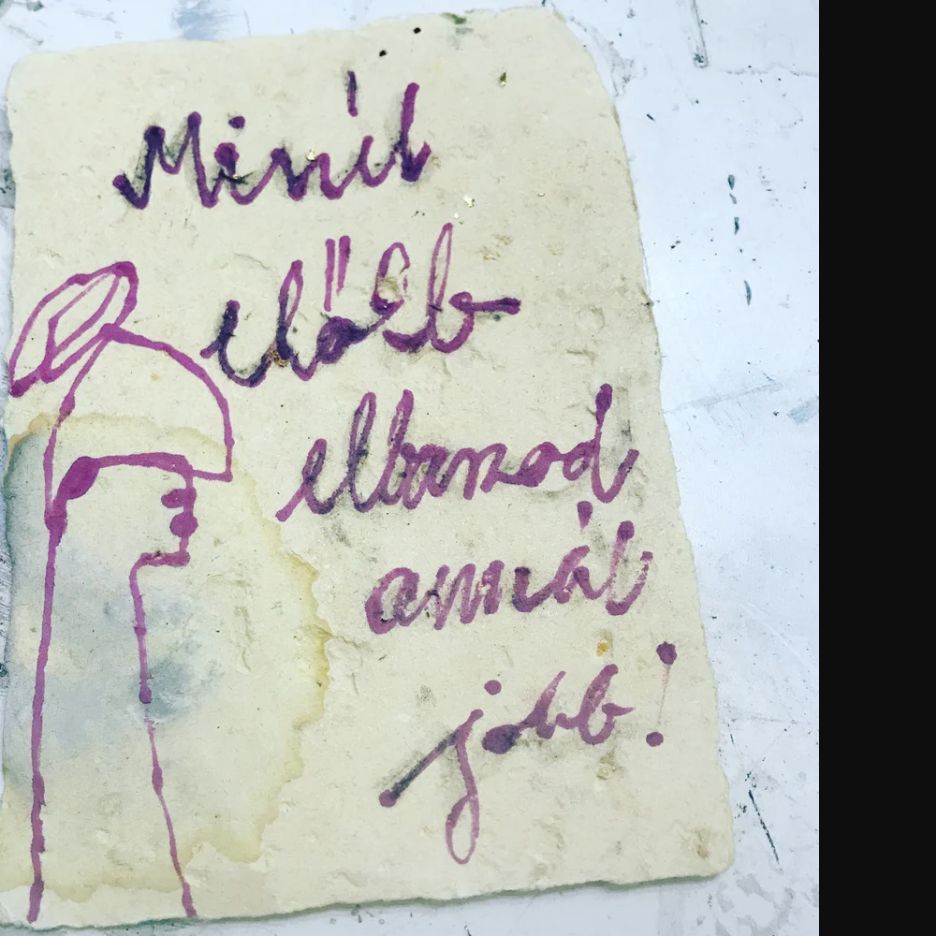 Minél
előbb
elbaszod
annál
jobb!